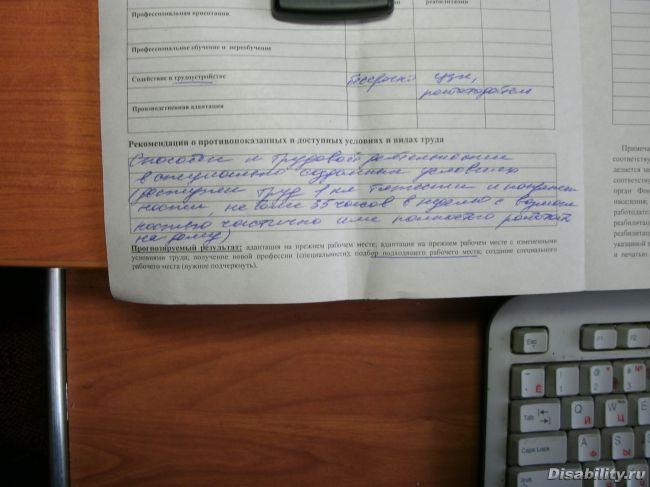 реабилитации
Профессиональная ориентация
Профессиональное обучение и переобучение
Содействие в трудоустройстве
бессрочно
ЦЗН,
работодатели
Производственная адаптация
Рекомендации о противопоказанных и доступных условиях и видах труда
Способен к трудовой деятельности
в специально созданных условиях
(доступен труд 1 кл тяжести и напряжен
ности, не более 35 часов в неделю с возмож
ностью частично или полностью работать
на дому)
Прогнозируемый результат: адаптация на прежнем рабочем месте; адаптация на прежнем рабочем месте с измененными
условиями труда; получение новой профессии (специальности); подбор подходящего рабочего места; создание специального
рабочего места (нужное подчеркнуть).
Примеча
соответству
делается за
соответству
орган Фон
населения;
работодате
реабилита
реабилита
указанной
и печатью
Esc
F1
F2
Ё
1
2
3
№
Tab
Q
Й
W
Ц
Caps Lock
A
Ф
S
Ы
Shift
Disability.ru